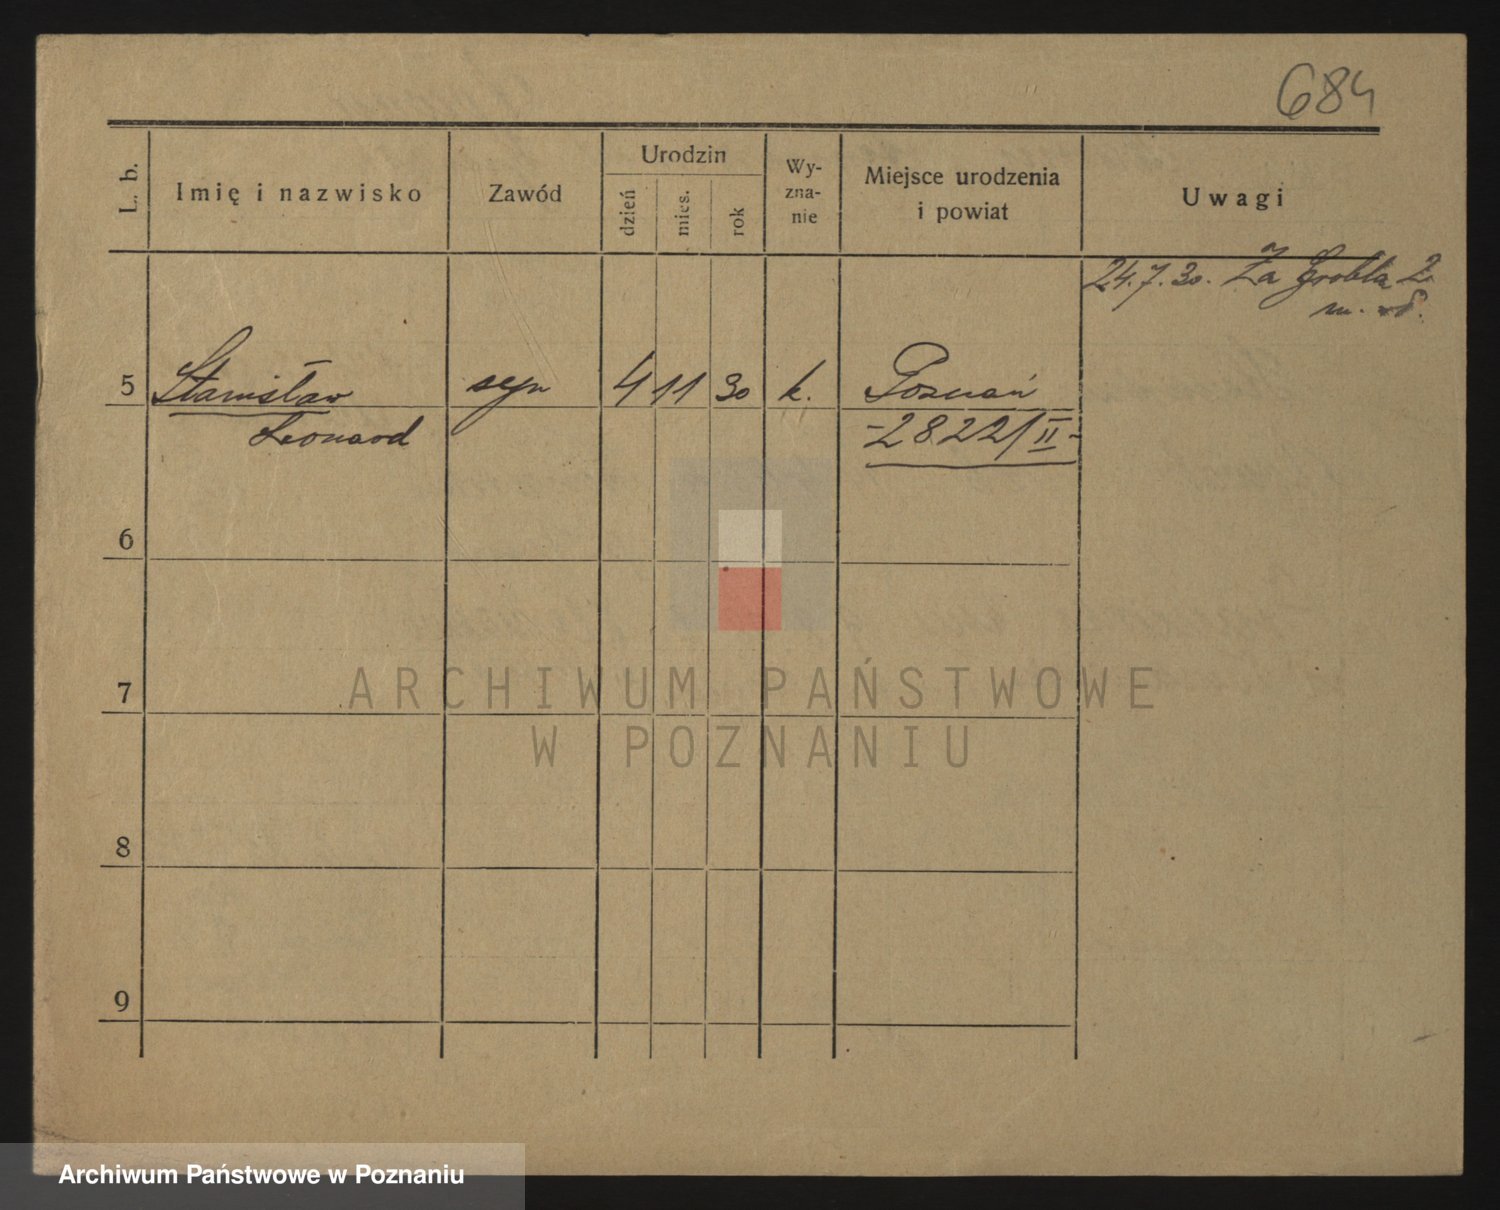 684
L. b.
Imię i nazwisko
Zawód
Urodzin
dzień
mies.
rok
Wy-
zna-
nie
Miejsce urodzenia
i powiat
Uwagi
24.7.30. Za Groblą 2
m. 8.
5 Stanisław syn 4 11 30 k. Poznań
Leonard -2822/II-
6
7
8
9
ARCHIWUM PAŃSTWOWE
W POZNANIU
Archiwum Państwowe w Poznaniu